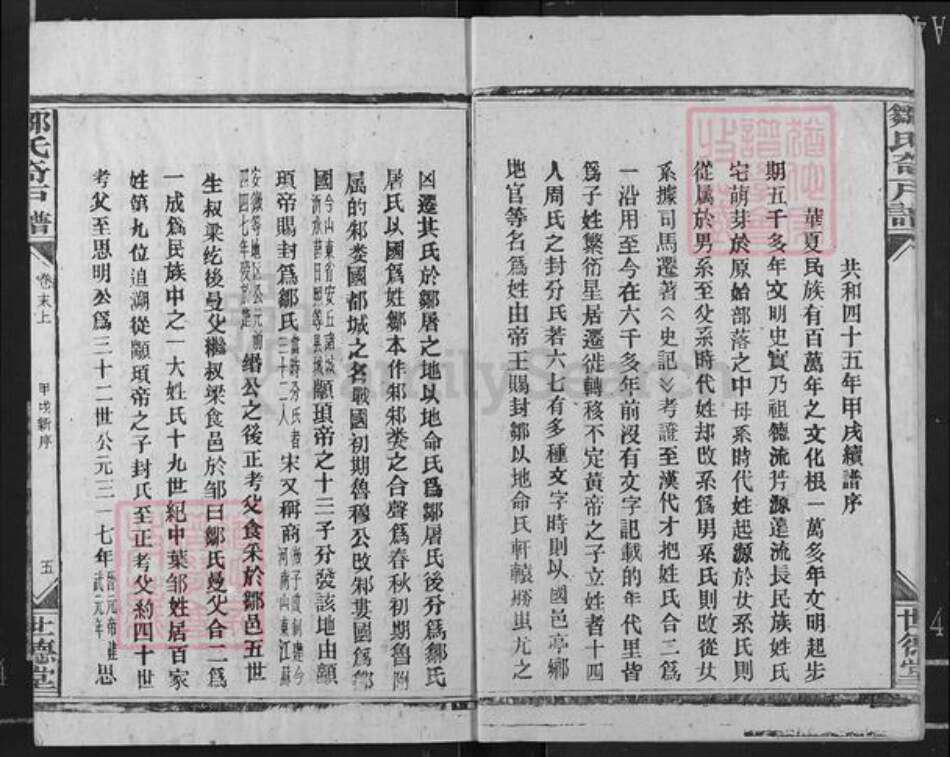 共和四十五年甲戌續譜序
華夏民族有百萬年之文化根一萬多年文明起步
期五千多年文明史實乃祖德流芳源遠流長民族姓氏
宅萌芽於原始部落之中母系時代姓起源於女系氏則
從属於男系至父系時代姓却改系爲男系氏則改從女
系據司馬遷著《史記》考證至漢代才把姓氏合二爲
一沿用至今在六千多年前沒有文字記載的年代里皆
爲子姓繁衍星居遷徙轉移不定黃帝之子立姓者十四
人周氏之封分氏若六七有多種文字時則以國邑亭鄉
地官等名爲姓由帝王賜封鄒以地命氏軒轅勝蚩尤之
凶遷其氏於鄒屠之地以地命氏爲鄒屠氏後分爲鄒氏
屠氏以國爲姓鄒本作邾邾娄之合聲爲春秋初期魯附
属的邾娄國都城之名戰國初期魯穆公改邾婁國爲鄒
國今山東省安丘諸城沂水莒日照等县域顓頊帝之十二子分發該地由顓
頊帝賜封爲鄒氏當時分氏者三十二人宋又稱商微子啟制達今河南山東江蘇
安徽等地区公元前四四七年被楚緡公之後正考父食采於鄒邑五世
生叔梁紇後曼父繼叔梁食邑於邹曰鄒氏曼父合二爲
一成爲民族中之一大姓氏十九世紀中葉邹姓居百家
姓第九位追溯從顓頊帝之子封氏至正考父約四十世
考父至思明公爲三十二世公元三一七年晉元帝建武元年思
鄒氏奇戸譜
卷末上
甲戌新序
五
世德堂
鄒氏奇戸譜
世德堂
FamilySearch